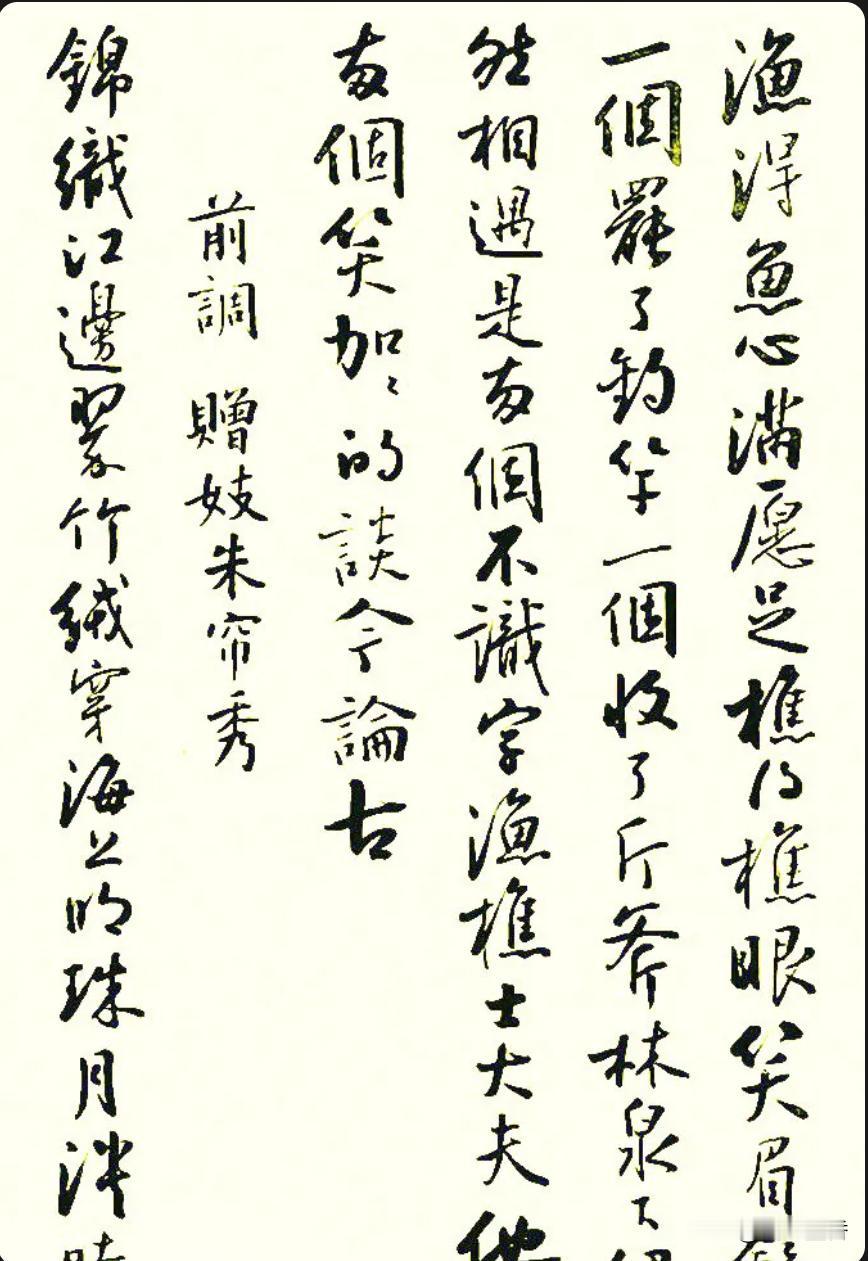 漁得魚心滿愿足樵得樵眼笑眉
一個罷了釣竿一個收了斤斧林泉下
然相遇是兩個不識字漁樵士大夫他
兩個笑加〻的談今論古
前調 贈妓朱帘秀
錦織江邊翠竹絨穿海上明珠月淡時